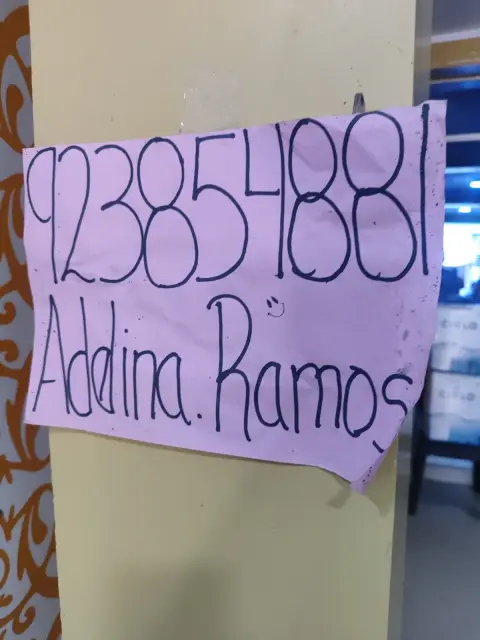 923854881
Addina. Ramos